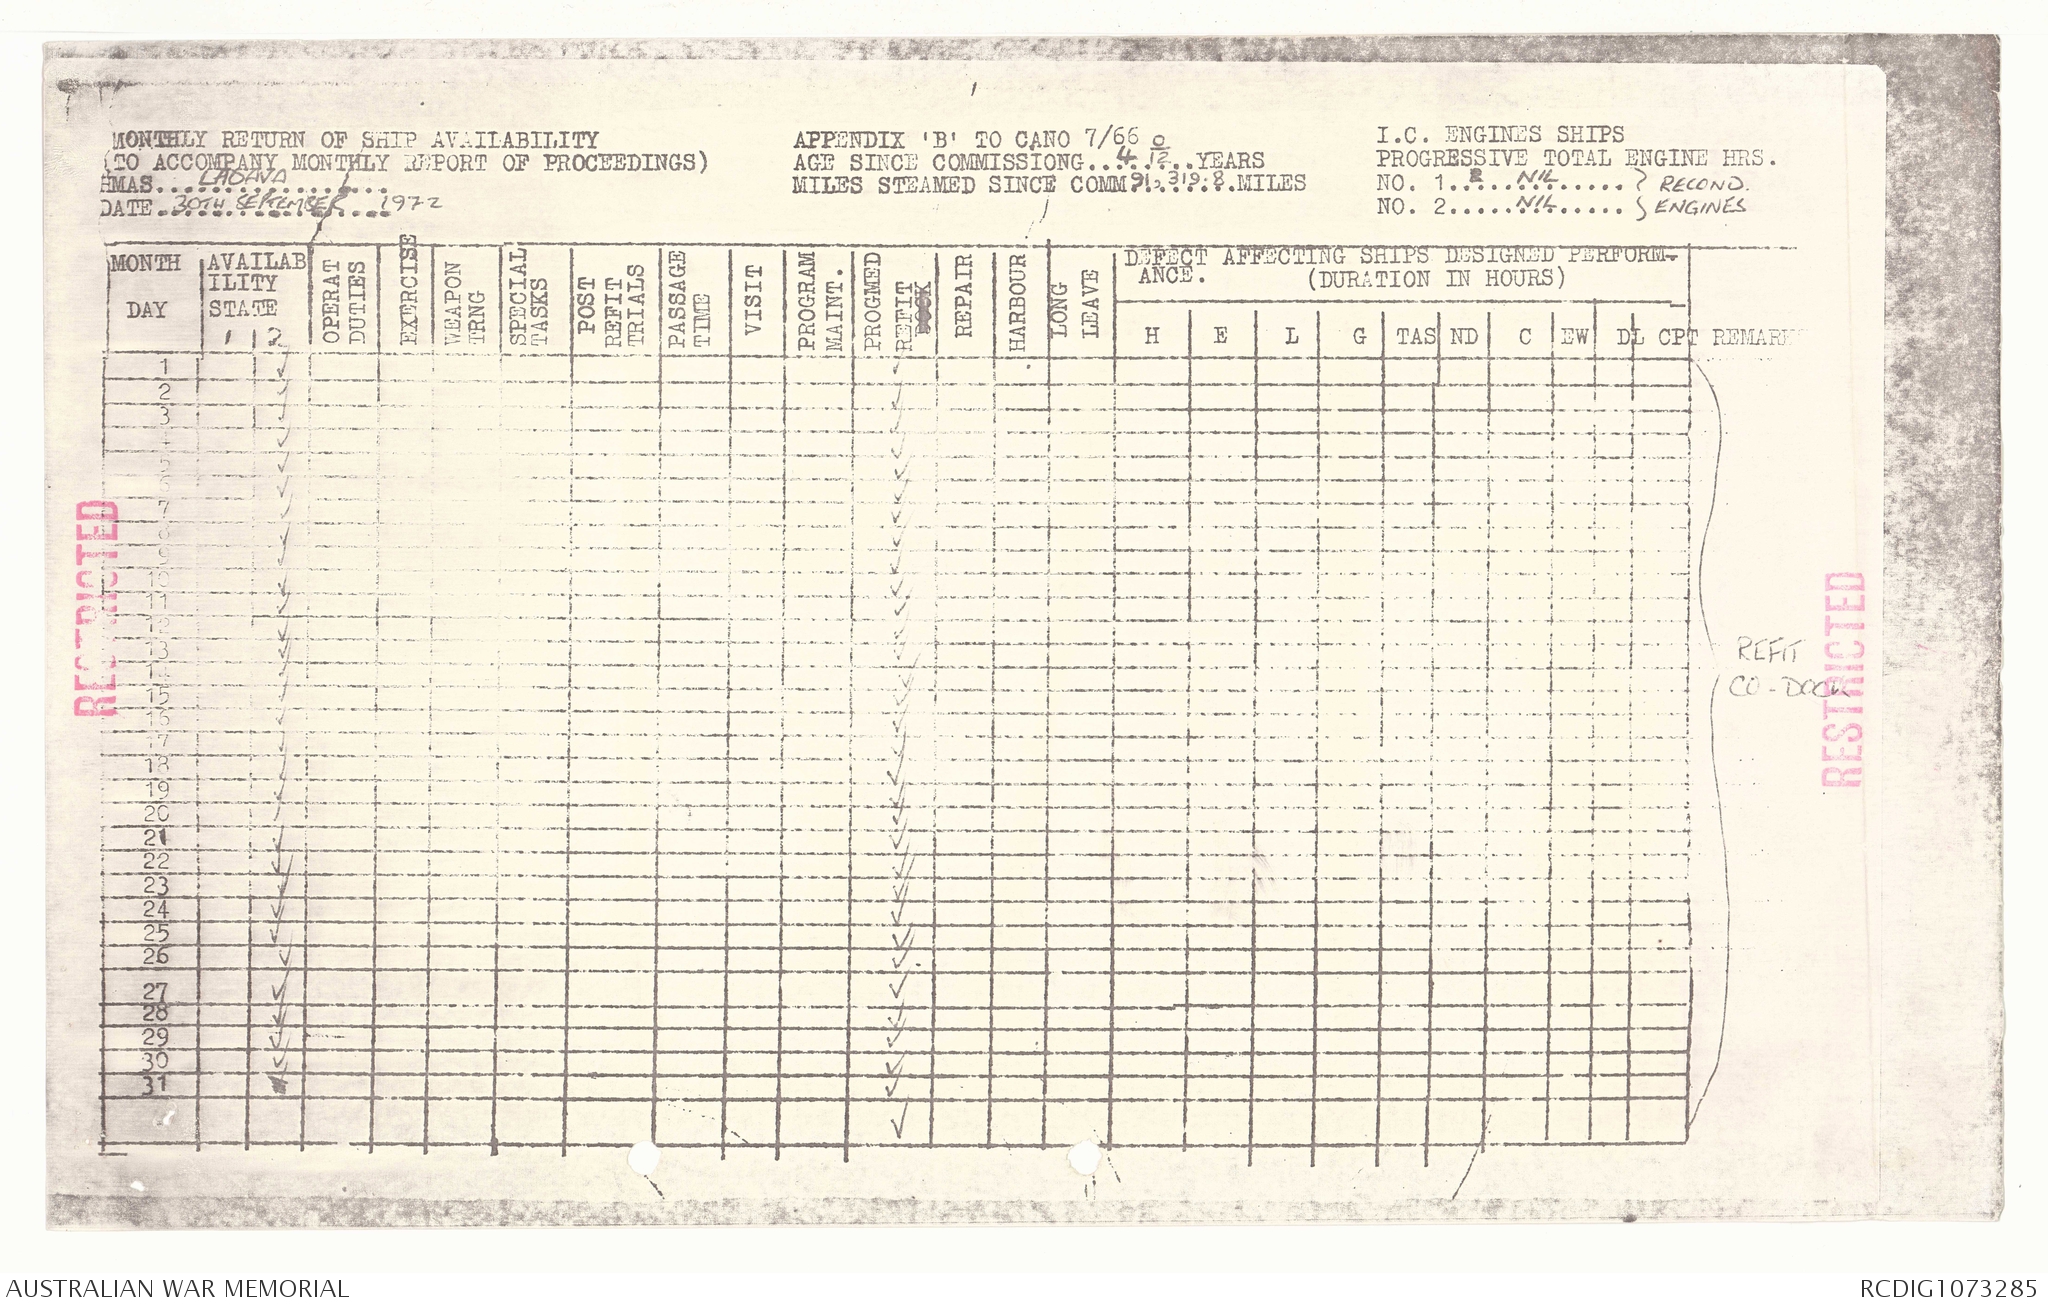 MONTHLY RETURN OF SHIP AVAILABILITY
(TO ACCOMPANY MONTHLY REPORT OF PROCEEDINGS)
HMAS....LADAVA..............
DATE.30TH SEPTEMBER 1972
APPENDIX 'B' TO CANO 7/66
AGE SINCE COMMISSIONG..4 0/12..YEARS
MILES STEAMED SINCE COMM 91,319.8.MILES
I.C. ENGINES SHIPS
PROGRESSIVE TOTAL ENGINE HRS.
NO. 1......NIL...... } RECOND.
NO. 2......NIL...... } ENGINES
MONTH
DAY
AVAILAB
ILITY
STATE
1 2
OPERAT
DUTIES
EXERCISE
WEAPON
TRNG
SPECIAL
TASKS
POST
REFIT
TRIALS
PASSAGE
TIME
VISIT
PROGRAM
MAINT.
PROGMED
REFIT
REPAIR
HARBOUR
LONG
LEAVE
DEFECT AFFECTING SHIPS DESIGNED PERFORM-
ANCE. (DURATION IN HOURS)
H E L G TAS ND C EW DL CPT REMARK
1 ✓ ✓
2 ✓ ✓
3 ✓ ✓
4 ✓ ✓
5 ✓ ✓
6 ✓ ✓
7 ✓ ✓
8 ✓ ✓
9 ✓ ✓
10 ✓ ✓
11 ✓ ✓
12 ✓ ✓
13 ✓ ✓
14 ✓ ✓
15 ✓ ✓
16 ✓ ✓
17 ✓ ✓
18 ✓ ✓
19 ✓ ✓
20 ✓ ✓
21 ✓ ✓
22 ✓ ✓
23 ✓ ✓
24 ✓ ✓
25 ✓ ✓
26 ✓ ✓
27 ✓ ✓
28 ✓ ✓
29 ✓ ✓
30 ✓ ✓
31
REFIT
CO-DOCK
RESTRICTED
RESTRICTED
AUSTRALIAN WAR MEMORIAL
RCDIG1073285